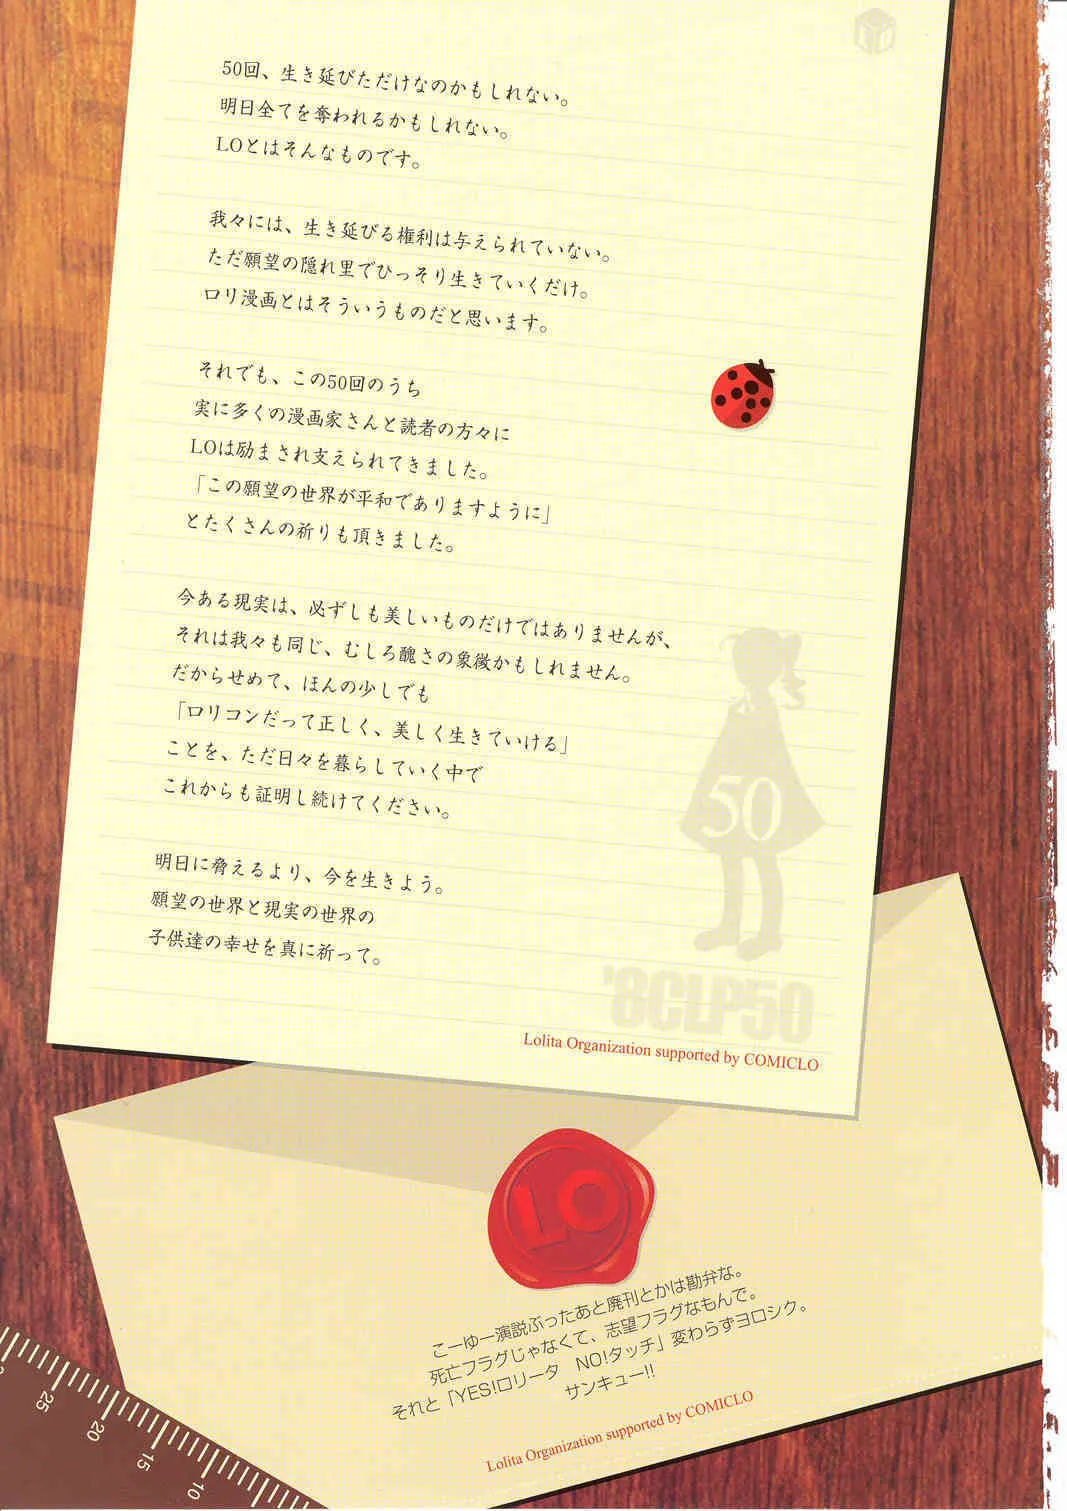 50回、生き延びただけなのかもしれない。
明日全てを奪われるかもしれない。
LOとはそんなものです。
我々には、生き延びる権利は与えられていない。
ただ願望の隠れ里でひっそり生きていくだけ。
ロリ漫画とはそういうものだと思います。
それでも、この50回のうち
実に多くの漫画家さんと読者の方々に
LOは励まされ支えられてきました。
「この願望の世界が平和でありますように」
とたくさんの祈りも頂きました。
今ある現実は、必ずしも美しいものだけではありませんが、
それは我々も同じ、むしろ醜さの象徴かもしれません。
だからせめて、ほんの少しでも
「ロリコンだって正しく、美しく生きていける」
ことを、ただ日々を暮らしていく中で
これからも証明し続けてください。
明日に脅えるより、今を生きよう。
願望の世界と現実の世界の
子供達の幸せを真に祈って。
50
'8CLP50
Lolita Organization supported by COMICLO
LO
こーゆー演説ぶったあと廃刊とかは勘弁な。
死亡フラグじゃなくて、志望フラグなもんで。
それと「YES!ロリータ NO!タッチ」変わらずヨロシク。
サンキュー!!
Lolita Organization supported by COMICLO
25
20
15
10